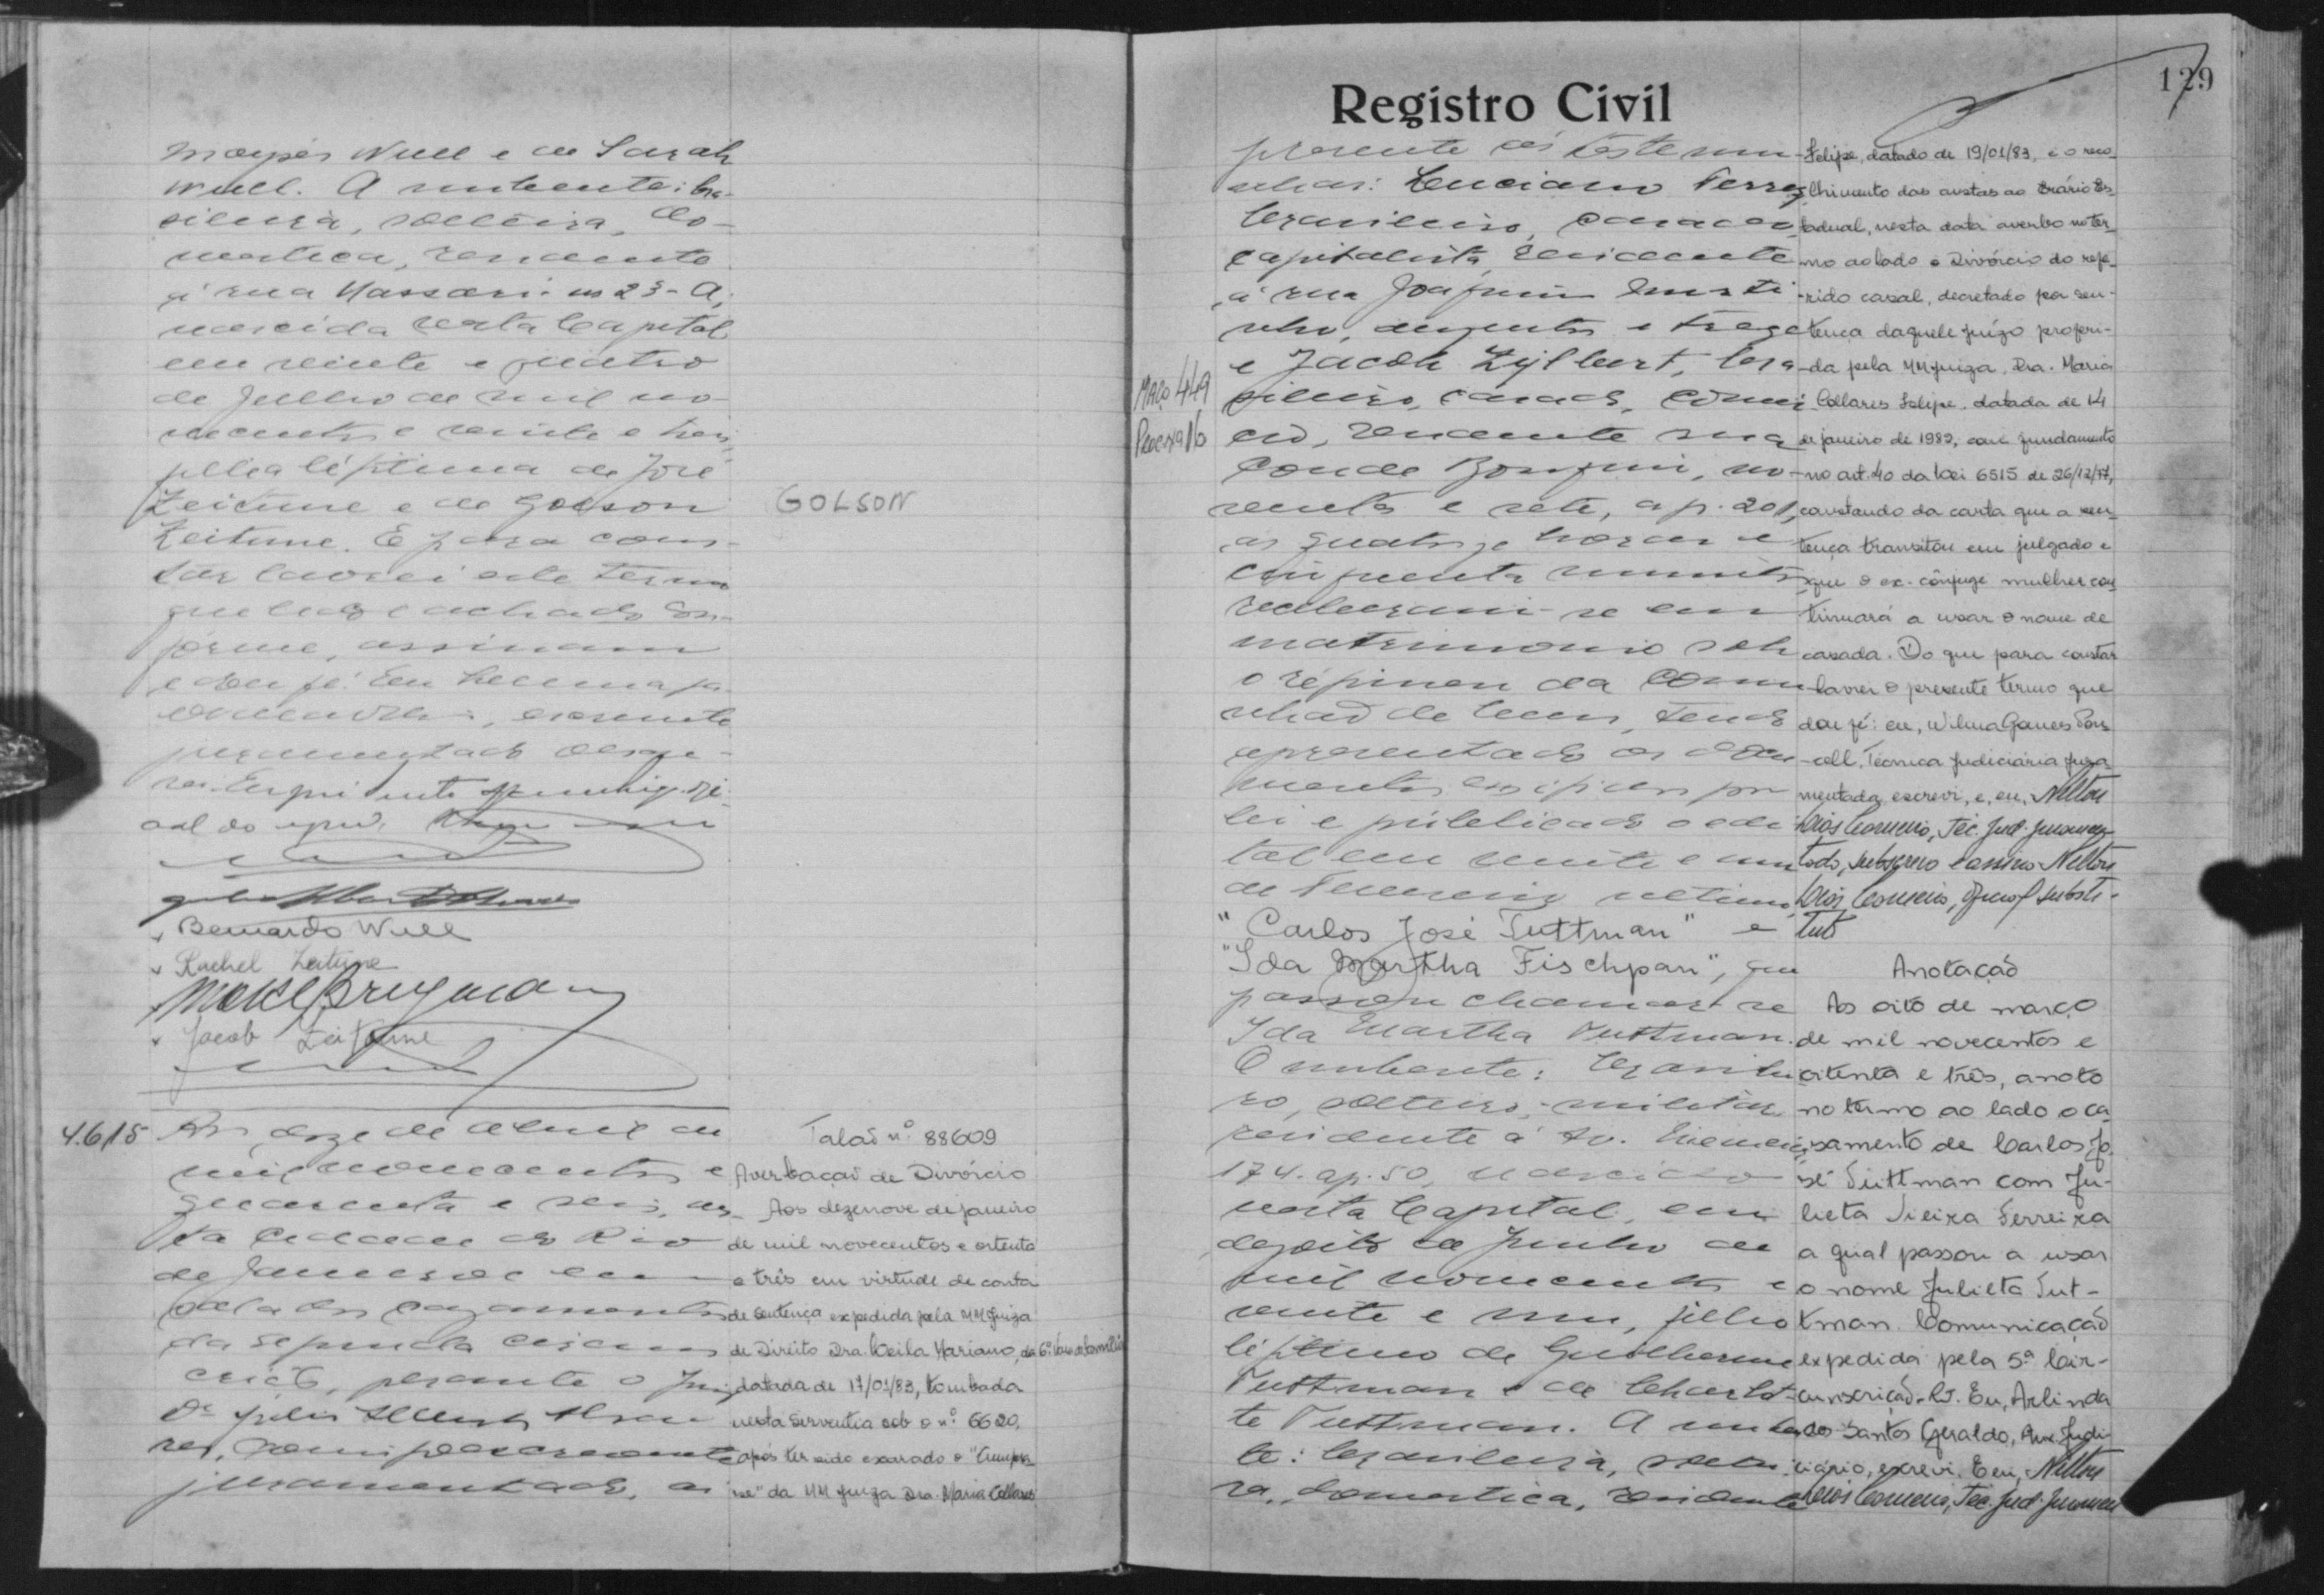 Moysés Wull e de Sarah
Wull. A nubente: bra-
sileira, solteira, do-
mestica, residente
á rua Nassari nº 23-A,
nascida nesta Capital
em vinte e quatro
de Julho de mil no-
vecentos e vinte e tres,
filha légitima de José
Zeitune e de Golson
GOLSON
Zeitune. E para cons-
tar lavrei este termo
que lido e achado con-
forme, assinam
e dou fé. Eu
escrevente
juramentado
Bernardo Wull
Rachel Zeitune
Jacob Zeitune
4.615
Aos doze de Abril de
mil novecentos e
quarenta e seis, nes-
ta Cidade do Rio
de Janeiro e em
sala dos casamentos
da segunda circuns-
crição, perante o Juiz
Dr Julio Alberto Alva-
res, comigo escrevente
juramentado, as
Talão nº 88609
Averbação de Divórcio
Aos dezenove de janeiro
de mil novecentos e oitenta
e três em virtude de carta
de sentença expedida pela MM Juiza
de Direito Dra. Leila Mariano, da 6ª Vara de Família
datada de 17/01/83, tombada
nesta Serventia sob o nº 6620,
após ter sido exarado o "Cumpra-
se" da MM Juiza Dra. Maria Collares
Registro Civil
129
presente as testemu-
nhas: Luciano Ferrez
brasileiro, casado,
capitalista, residente
á rua Joaquim Murti-
nho, duzentos e treze
e Jacob Zylbert, bra-
sileiro, casado, comér-
cio, residente rua
Conde Bomfim, no-
venta e sete, ap. 201,
as quatorze horas e
cinquenta minutos,
receberam-se em
matrimonio sob
o régimen da comu-
nhão de bens, tendo
apresentado os docu-
mentos exigidos por
lei e publicado o edi-
tal em vinte e um
de Fevereiro ultimo
"Carlos José Tuttman" e
"Ida Martha Fischpan", que
passou chamar-se
Ida Martha Tuttman.
O nubente: brasilei-
ro, solteiro, militar
residente á Av.
174. ap. 50, nascido
nesta Capital, em
dezoito de Junho de
mil novecentos e
vinte e um, filho
légitimo de Guilherme
Tuttman e de Charlot-
te Tuttman. A nuben-
te: brasileira, soltei-
ra, domestica, residente
Maço 449
Felipe, datado de 19/01/83, e o reco-
lhimento das custas ao Erário Es-
tadual, nesta data averbo no ter-
mo ao lado o Divórcio do refe-
rido casal, decretado por sen-
tença daquele Juízo proferi-
da pela MM Juiza, Dra. Maria
Collares Felipe, datada de 14
de janeiro de 1983, com fundamento
no art. 40 da Lei 6515 de 26/12/77,
constando da carta que a sen-
tença transitou em julgado e
que o ex-cônjuge mulher con-
tinuará a usar o nome de
casada. Do que para constar
lavrei o presente termo que
dou fé: eu, Wilma Gomes Pos-
soll, Técnica Judiciária Jura-
mentada, escrevi, e, eu, Nilton
Dias Correia, Téc. Jud. Juramen-
tado, subscrevo e assino Nilton
Dias Correia, Oficial Substi-
tuto
Anotação
Aos oito de março
de mil novecentos e
oitenta e três, anoto
no termo ao lado o ca-
samento de Carlos Jo-
sé Tuttman com Ju-
lieta Vieira Ferreira
a qual passou a usar
o nome Julieta Tut-
tman. Comunicação
expedida pela 5ª Cir-
cunscrição-RJ. Eu, Arlinda
dos Santos Geraldo, Aux. Judi-
ciário, escrevi. E eu, Nilton
Dias Correia, Téc. Jud. Juramen